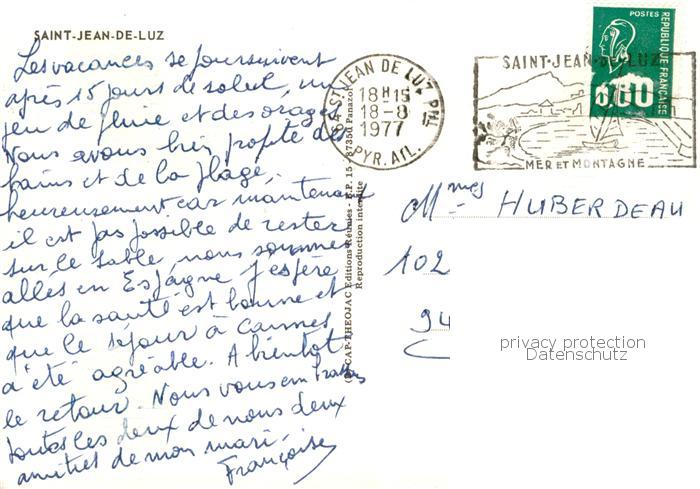 SAINT-JEAN-DE-LUZ
Les vacances se poursuivent
après 15 jours de soleil, un
peu de pluie et des orages
Nous avons bien profité des
bains et de la plage,
heureusement car maintenant
il est pas possible de rester
sur le sable nous sommes
allés en Espagne J'espère
que la santé est bonne et
que le séjour à Cannes
a été agréable. A bientôt
le retour. Nous vous embrassons
toutes les deux de nous deux
amitiés de mon mari.
Françoise
CAP-THEOJAC Editions Réunies - B.P. 15 - 87350 Panazol
Reproduction interdite
64 ST JEAN DE LUZ PPAL
18H15
18-8
1977
PYR. ATL.
SAINT-JEAN-DE-LUZ
MER ET MONTAGNE
POSTES
REPUBLIQUE FRANÇAISE
0,80
Mmes HUBERDEAU
102
94
privacy protection
Datenschutz